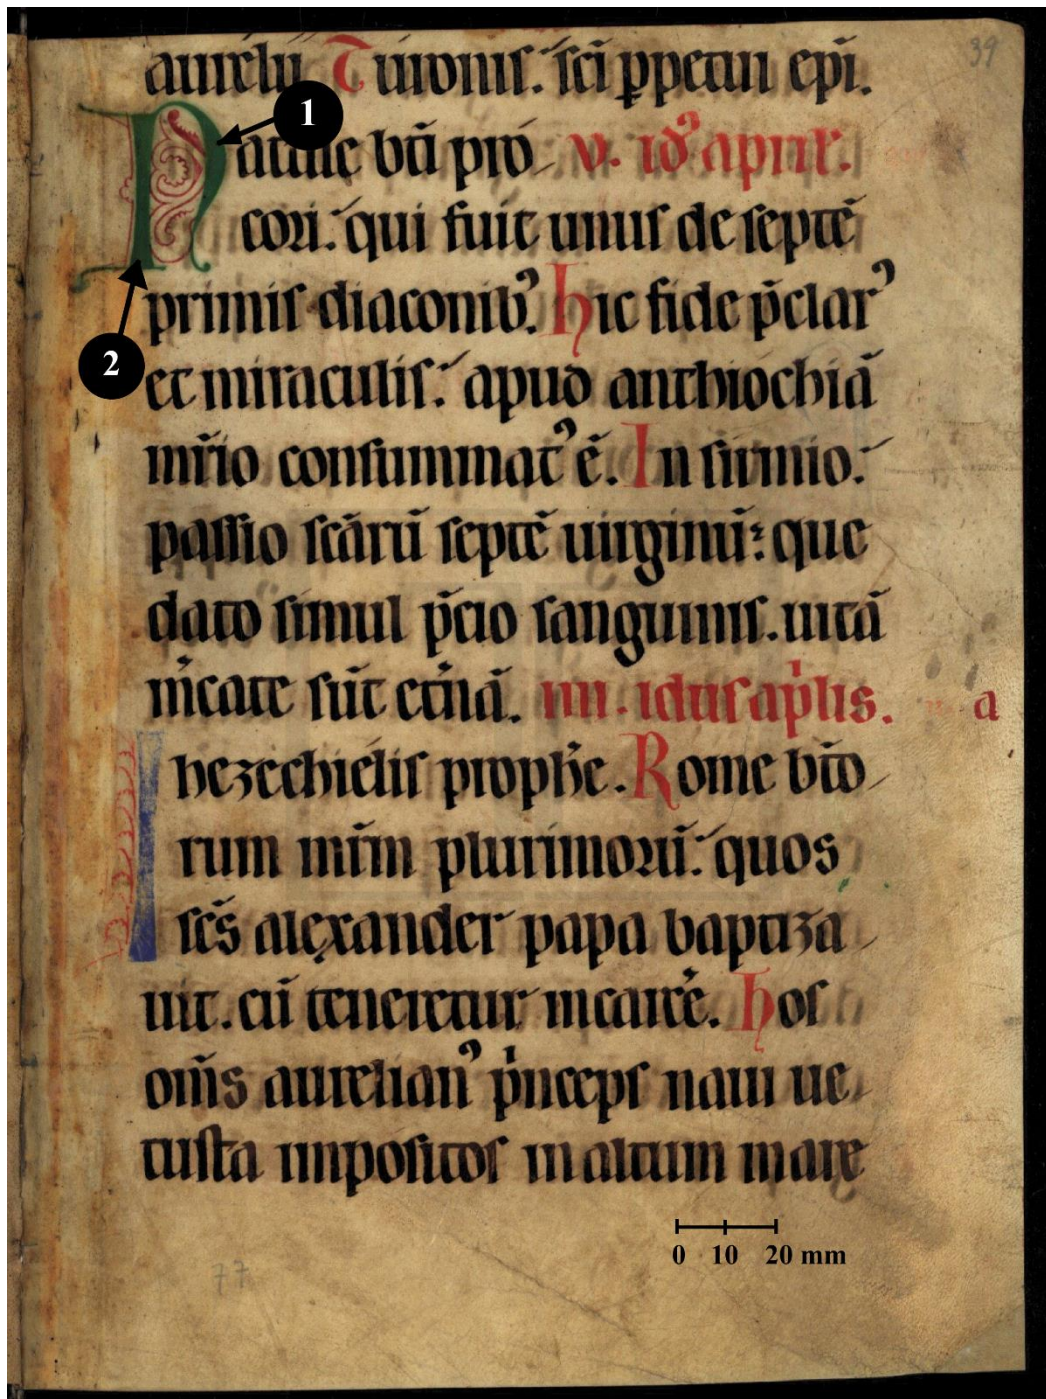 39
1
2
aurelii Turonis. sci ꝑpetui epi.
Natale bti pro v. id' aprił.
cori. qui fuit unus de septē
primis diaconib'. Hic fide p̄clar'
et miraculis. apud anthiochiā
mr̄io consummat' ē. In sirmio.
passio scārū septē uirginū: que
dato simul p̄cio sanguinis. uitā
m̄care sūt et̄nā. iiii. idus ap̄lis. a
Ihezechielis proph̄e. Rome bto
rum mr̄m plurimorū. quos
scs̄ alexander papa baptiza
uit. cū teneretur incarce. Hos
om̄s aurelian' p̄nceps naui ue
tusta impositos in altum mare
0 10 20 mm
77